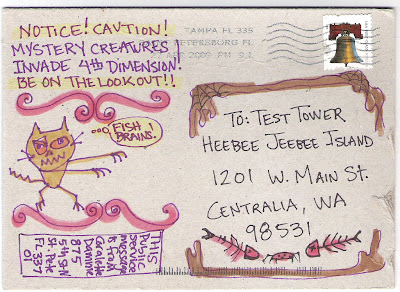 NOTICE! CAUTION!
MYSTERY CREATURES
INVADE 4th DIMENSION!
BE ON THE LOOKOUT!!
...FISH
BRAINS!
TAMPA FL 335
PETERSBURG FL
2009 PM
TO: TEST TOWER
HEEBEE JEEBEE ISLAND
1201 W. MAIN ST.
CENTRALIA, WA
98531
THIS
Public
Service
message
BY
875
5th St. N
St. Pete
FL 337
01